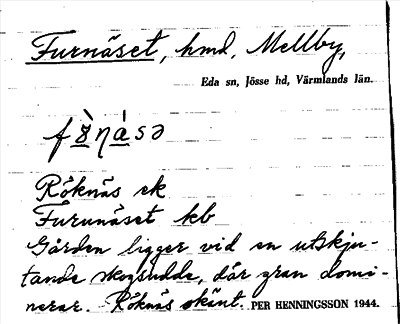 Furnäset, hmd, Mellby,
Eda sn, Jösse hd, Värmlands län.
Röknäs ek
Furunäset kb
Gården ligger vid en utskju-
tande skogsudde, där gran domi-
nerar. Röknäs okänt. PER HENNINGSSON 1944.